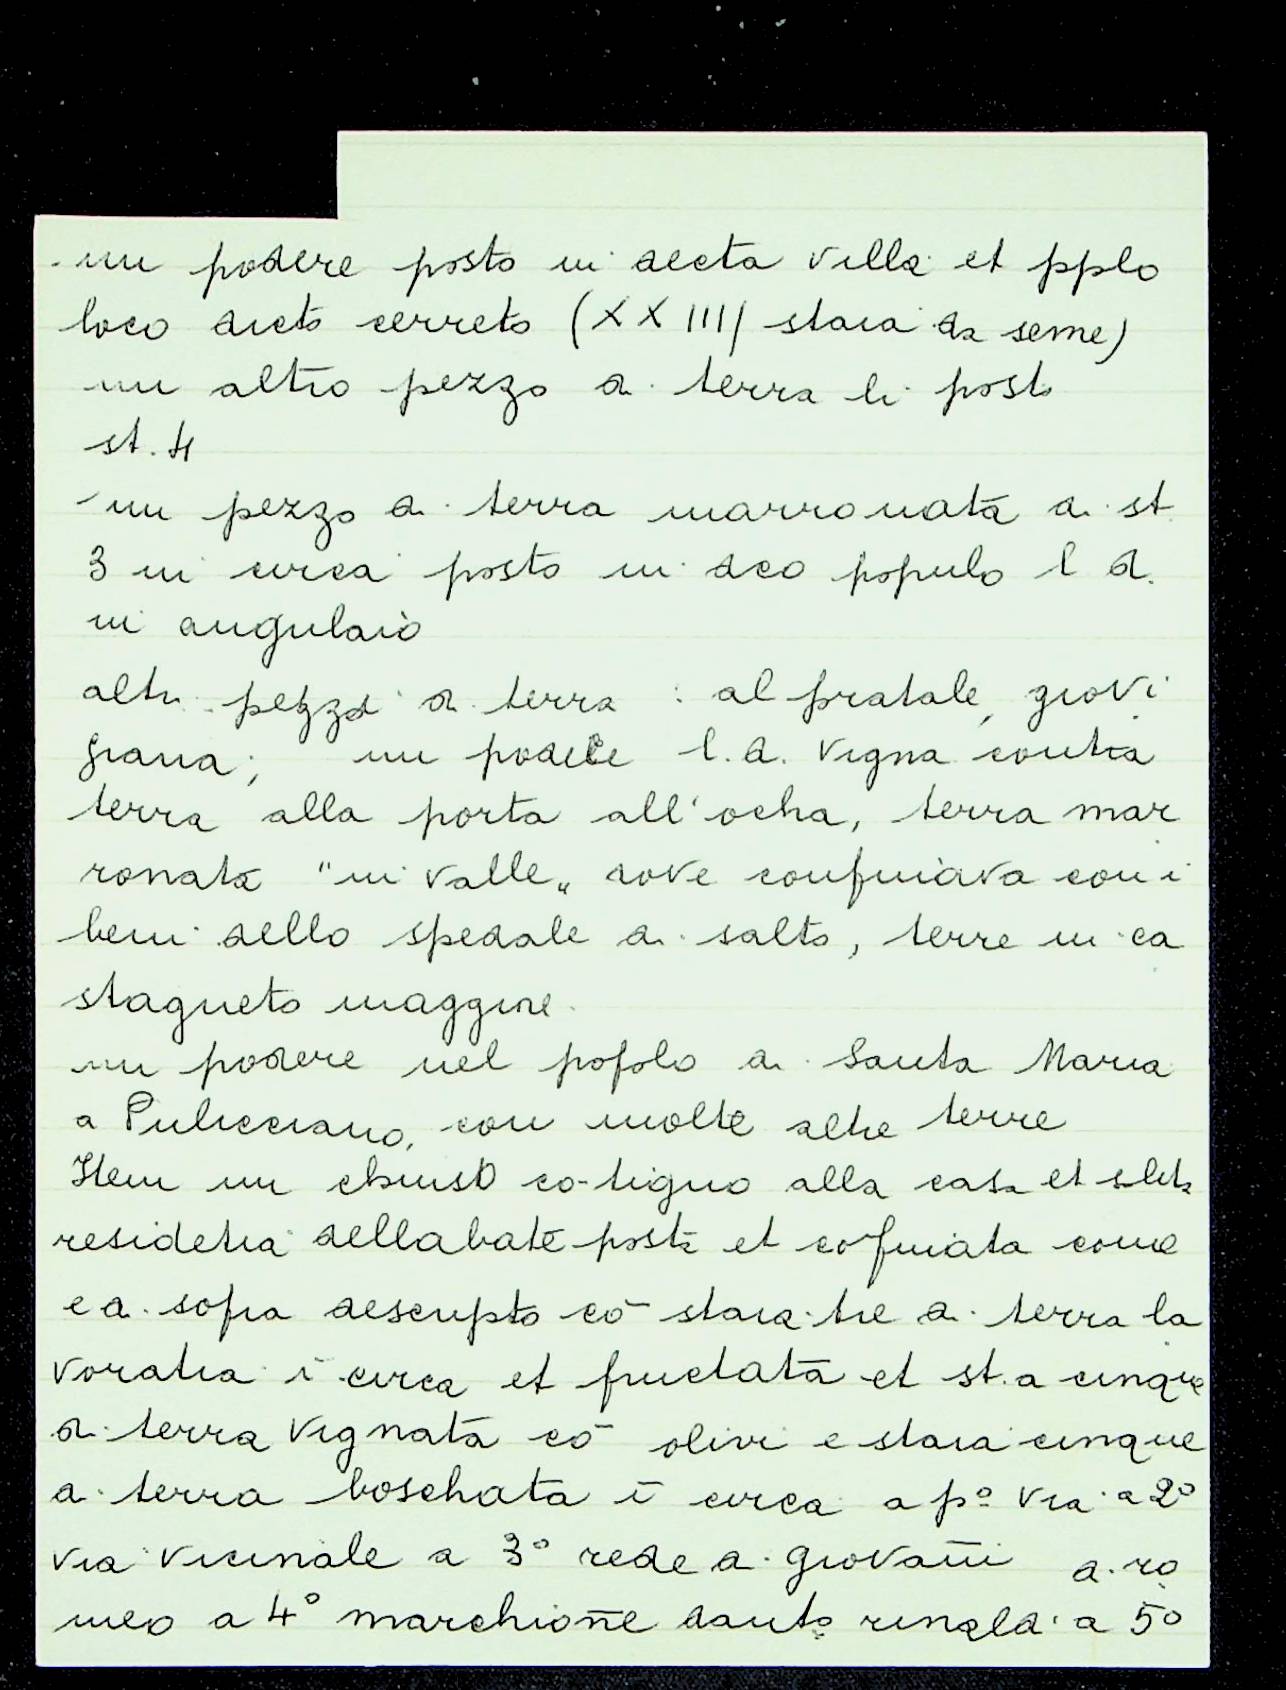 - un podere posto in decta villa et pplo
loco dicto cerreto (XXIII| staia da seme)
un altro pezzo di terra li posto
st. 4
- un pezzo di terra marronata di st.
3 in circa posto in dco populo l d.
in angulaio
altri pezzi di terra : al pratale, giovi
giana; un podere l.d. vigna contra
terra alla porta all'ocha, terra mar
ronata "in valle„ dove confinava con i
beni dello spedale di salto, terre in ca
stagneto maggiore.
un podere nel popolo di Santa Maria
a Pulicciano, con molte altre terre
Item un chiuso co-tiguo alla casa et
residetia dellabate posta et cōfinata come
e di sopra descripto cō staia tre di terra la
voratia ī circa et fructata et st.a cinque
di terra vignata cō olivi e staia cinque
di terra boschata ī circa a pº via a 2º
via vicinale a 3º rede di giovañi di ro
meo a 4º marchioñe dantº rinaldi a 5º